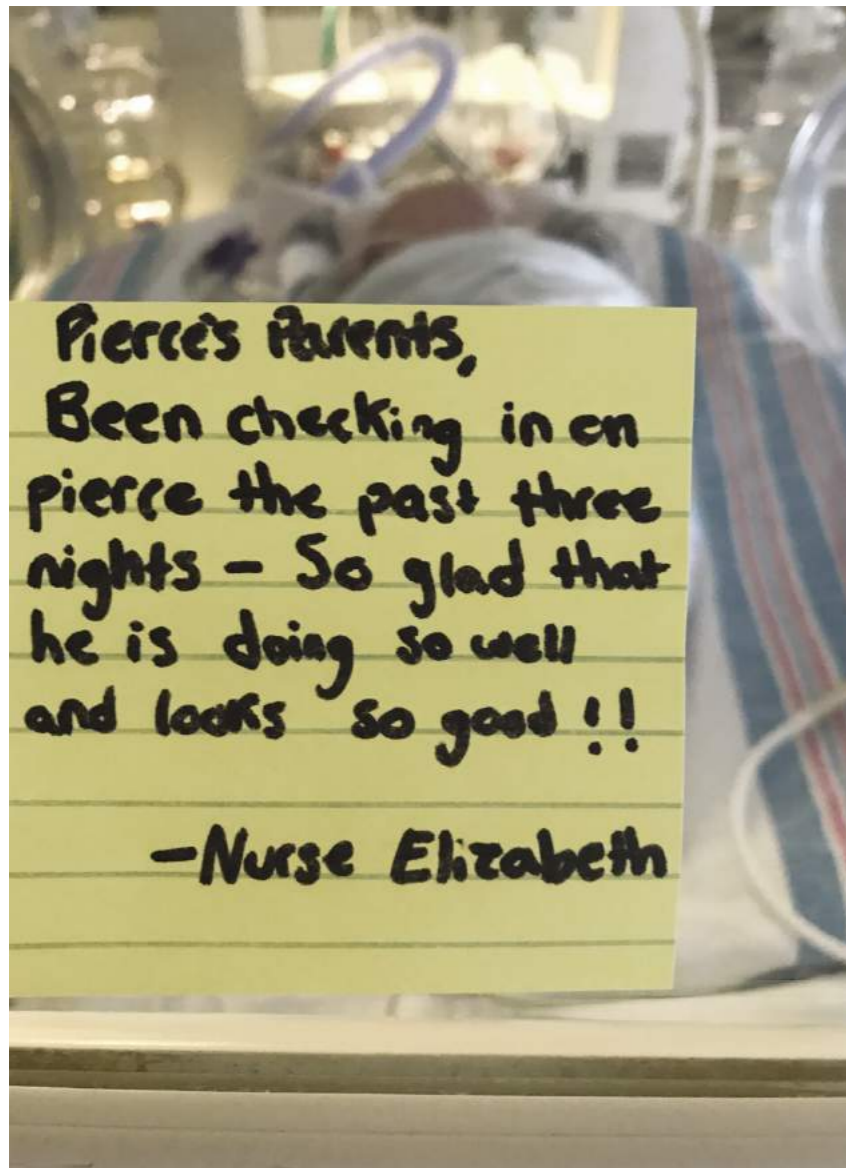 Pierce's Parents,
Been checking in on
pierce the past three
nights – So glad that
he is doing so well
and looks so good!!
–Nurse Elizabeth